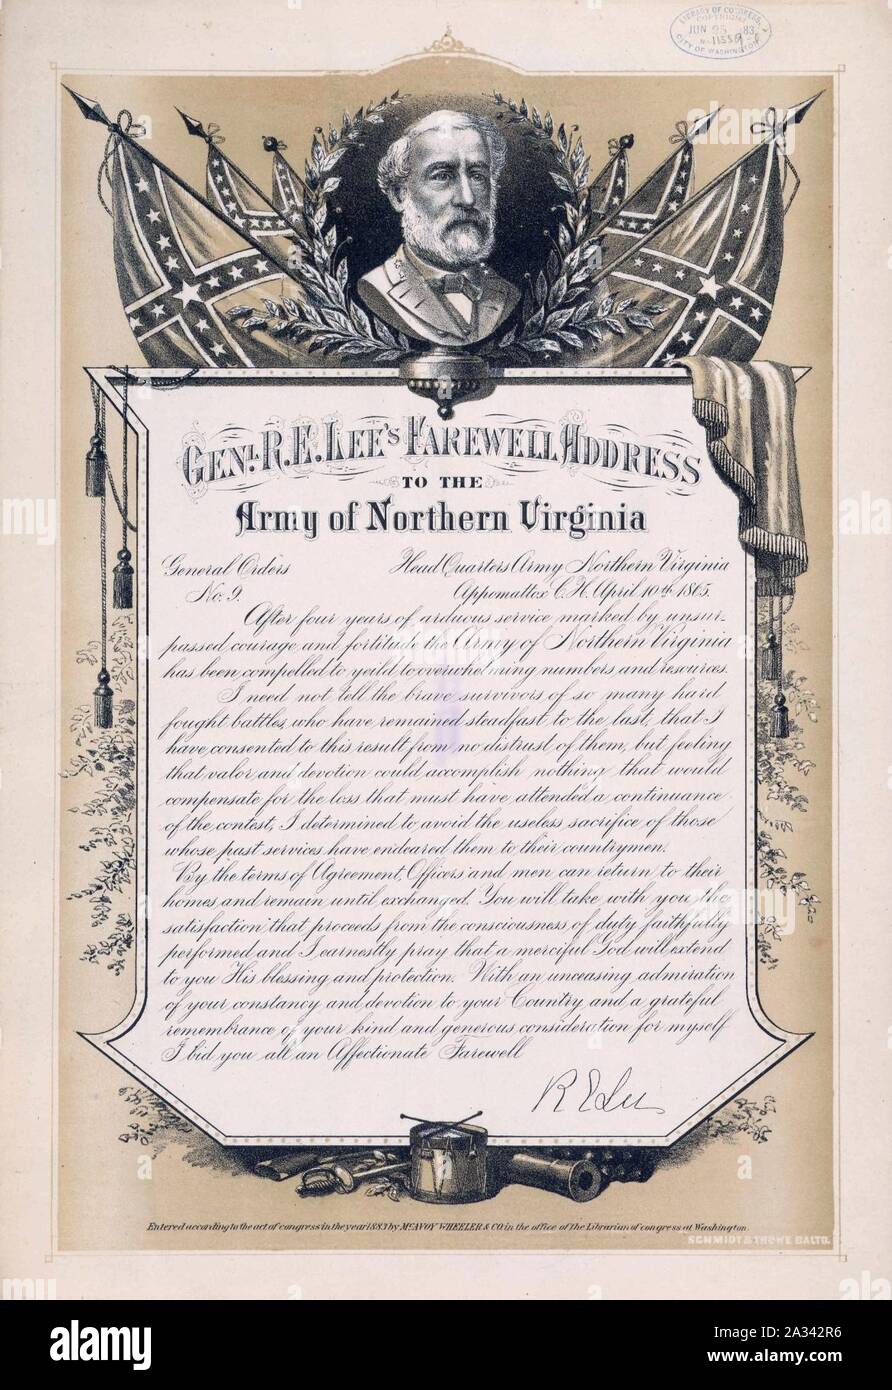 LIBRARY OF CONGRESS,
COPYRIGHT
JUN 25 83
CITY OF WASHINGTON
GENL. R. E. LEE'S FAREWELL ADDRESS
TO THE
Army of Northern Virginia
General Orders Head Quarters Army Northern Virginia
No. 9. Appomattox C. H. April 10th 1865.
After four years of arduous service marked by unsur-
passed courage and fortitude the Army of Northern Virginia
has been compelled to yeild to overwhelming numbers and resources.
I need not tell the brave survivors of so many hard
fought battles, who have remained steadfast to the last, that I
have consented to this result from no distrust of them, but feeling
that valor and devotion could accomplish nothing that would
compensate for the loss that must have attended a continuance
of the contest, I determined to avoid the useless sacrifice of those
whose past services have endeared them to their countrymen.
By the terms of Agreement, Officers and men can return to their
homes and remain until exchanged. You will take with you the
satisfaction that proceeds from the consciousness of duty faithfully
performed and I earnestly pray that a merciful God will extend
to you His blessing and protection. With an unceasing admiration
of your constancy and devotion to your Country and a grateful
remembrance of your kind and generous consideration for myself
I bid you all an Affectionate Farewell
R E Lee
Entered according to the act of congress in the year 1883 by McAVOY WHEELER & CO. in the office of the Librarian of congress at Washington.
SCHMIDT & TROWE BALTO.
alamy
Image ID: 2A342R6
www.alamy.com